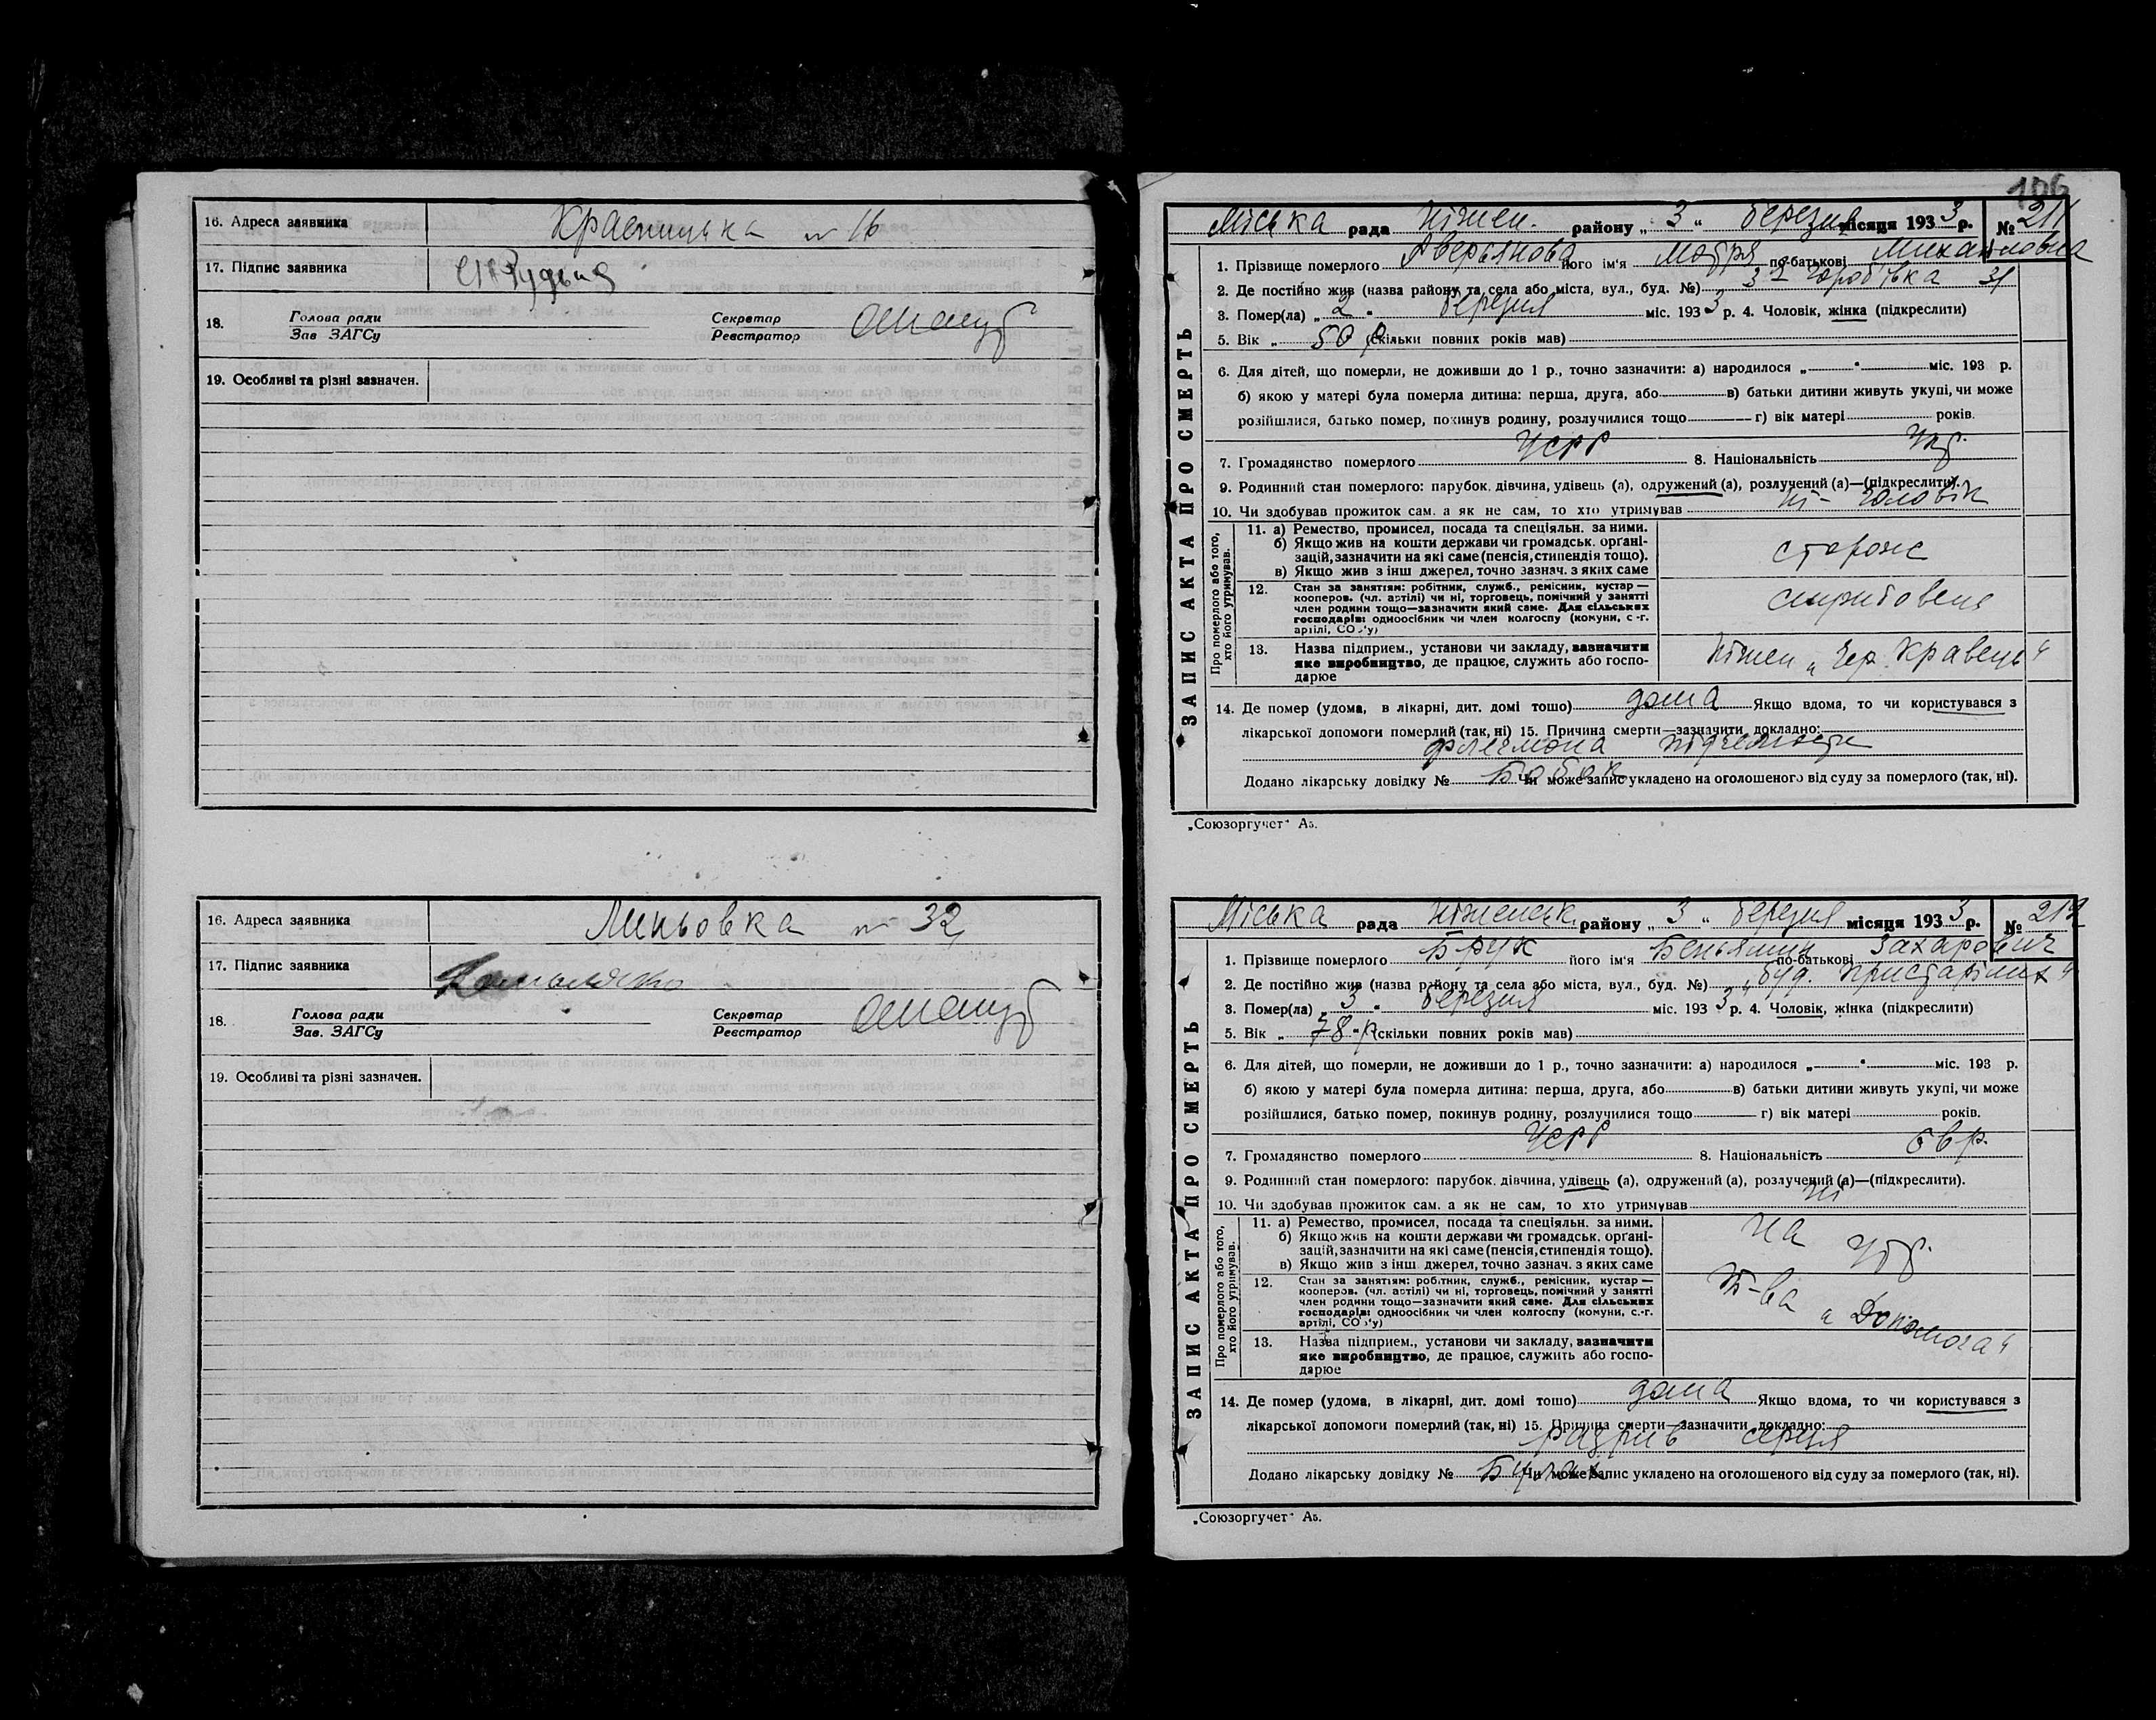 16. Адреса заявника Красницька № 16
17. Підпис заявника
18. Голова ради Секретар
Зав ЗАГСу Реєстратор
19. Особливі та різні зазначен.
16. Адреса заявника Миньовка № 32
17. Підпис заявника
18. Голова ради Секретар
Зав. ЗАГСу Реєстратор
19. Особливі та різні зазначен.
106
Міська рада Ніжен. району „ 3 “ березня місяця 1933 р. № 211
ЗАПИС АКТА ПРО СМЕРТЬ
1. Прізвище померлого Аверьянова його ім'я Мотря по-батькові Михайловна
2. Де постійно жив (назва району та села або міста, вул., буд. №) 31
3. Помер(ла) „ 2 “ березня міс. 1933 р. 4. Чоловік, жінка (підкреслити)
5. Вік „ 50 р (скільки повних років мав)
6. Для дітей, що померли, не доживши до 1 р., точно зазначити: а) народилося „ “ міс. 193 р.
б) якою у матері була померла дитина: перша, друга, або в) батьки дитини живуть укупі, чи може
розійшлися, батько помер, покинув родину, розлучилися тощо г) вік матері років.
7. Громадянство померлого УСРР 8. Національність Укр.
9. Родинний стан померлого: парубок, дівчина, удівець (а), одружений (а), розлучений (а)—(підкреслити).
10. Чи здобував прожиток сам, а як не сам, то хто утримував ні - чоловік
Про померлого або того, хто його утримував.
11. а) Ремество, промисел, посада та спеціяльн. за ними.
б) Якщо жив на кошти держави чи громадськ. орґані-
зацій, зазначити на які саме (пенсія, стипендія тощо).
в) Якщо жив з інш джерел, точно зазнач. з яких саме
сторож
12. Стан за занятям: робітник, служб., ремісник, кустар —
кооперов. (чл. артілі) чи ні, торговець, помічний у занятті
член родини тощо—зазначити який саме. Для сільських
господарів: одноосібник чи член колгоспу (комуни, с.-г.
артілі, СОЗ'у)
13. Назва підприєм., установи чи закладу, зазначити
яке виробництво, де працює, служить або госпо-
дарює
Ніжен „Чер. Кравець“
14. Де помер (удома, в лікарні, дит. домі тощо) дома Якщо вдома, то чи користувався з
лікарської допомоги померлий (так, ні) 15. Причина смерти—зазначити докладно:
флегмона
Додано лікарську довідку № Бабак Чи може запис укладено на оголошеного від суду за померлого (так, ні).
„Союзоргучет“ А5.
Міська рада Ніженськ. району „ 3 “ березня місяця 1933 р. № 212
ЗАПИС АКТА ПРО СМЕРТЬ
1. Прізвище померлого Брук його ім'я Беньямин по-батькові Захарович
2. Де постійно жив (назва району та села або міста, вул., буд. №) „буд. Пристарілих“
3. Помер(ла) „ 3 “ березня міс. 1933 р. 4. Чоловік, жінка (підкреслити)
5. Вік „ 78 “ р (скільки повних років мав)
6. Для дітей, що померли, не доживши до 1 р., точно зазначити: а) народилося „ “ міс. 193 р.
б) якою у матері була померла дитина: перша, друга, або в) батьки дитини живуть укупі, чи може
розійшлися, батько помер, покинув родину, розлучилися тощо г) вік матері років.
7. Громадянство померлого УСРР 8. Національність Євр.
9. Родинний стан померлого: парубок, дівчина, удівець (а), одружений (а), розлучений (а)—(підкреслити).
10. Чи здобував прожиток сам, а як не сам, то хто утримував ні
Про померлого або того, хто його утримував.
11. а) Ремество, промисел, посада та спеціяльн. за ними.
б) Якщо жив на кошти держави чи громадськ. орґані-
зацій, зазначити на які саме (пенсія, стипендія тощо).
в) Якщо жив з інш джерел, точно зазнач. з яких саме
на утр.
12. Стан за занятям: робітник, служб., ремісник, кустар —
кооперов. (чл. артілі) чи ні, торговець, помічний у занятті
член родини тощо—зазначити який саме. Для сільських
господарів: одноосібник чи член колгоспу (комуни, с.-г.
артілі, СОЗ'у)
т-ва „Допомога“
13. Назва підприєм., установи чи закладу, зазначити
яке виробництво, де працює, служить або госпо-
дарює
14. Де помер (удома, в лікарні, дит. домі тощо) дома Якщо вдома, то чи користувався з
лікарської допомоги померлий (так, ні) 15. Причина смерти—зазначити докладно:
разрив серця
Додано лікарську довідку № Чи може запис укладено на оголошеного від суду за померлого (так, ні).
„Союзоргучет“ А5.